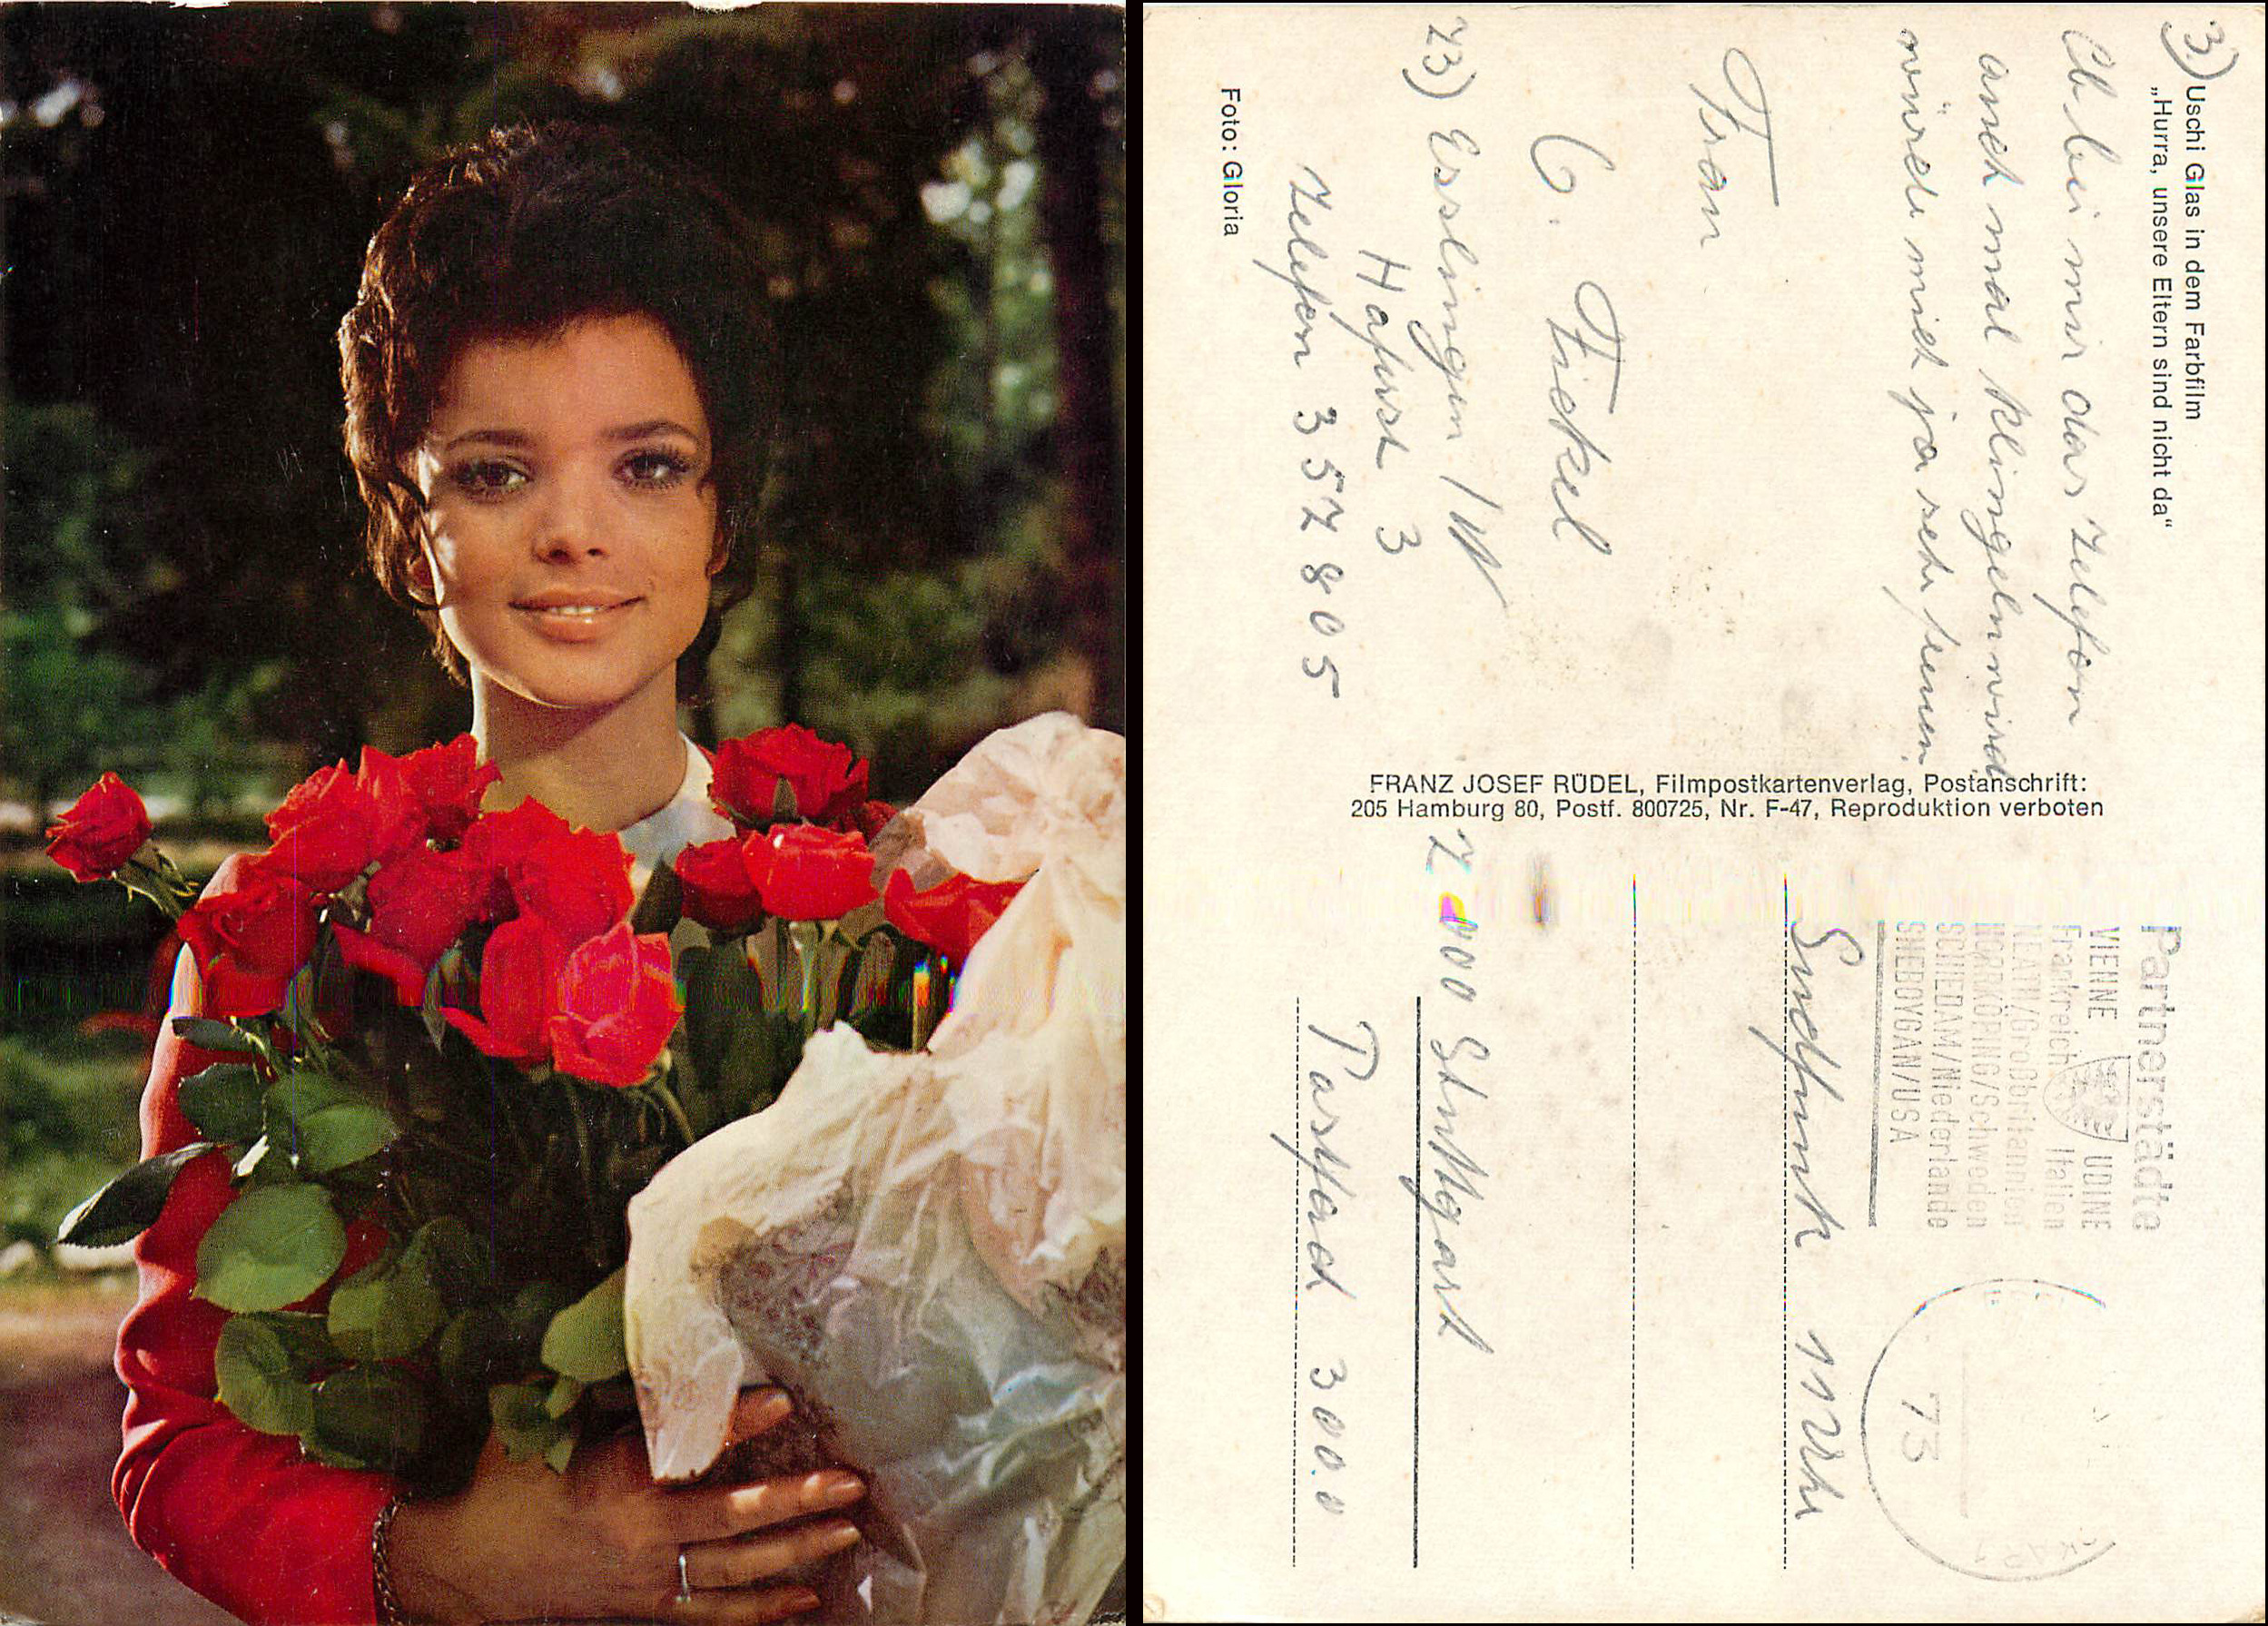 3) Uschi Glas in dem Farbfilm
„Hurra, unsere Eltern sind nicht da“
Ob bei mir das Telefon
auch mal klingeln wird
würde mich ja sehr freuen
Frau
G. Fickel
73) Esslingen /N
Hafurst 3
Telefon 357805
Foto: Gloria
FRANZ JOSEF RÜDEL, Filmpostkartenverlag, Postanschrift:
205 Hamburg 80, Postf. 800725, Nr. F-47, Reproduktion verboten
Partnerstädte
VIENNE UDINE
Frankreich Italien
NEATH/Großbritannien
NORRKÖPING/Schweden
SCHIEDAM/Niederlande
SHEBOYGAN/USA
73
Südfunk
7000 Stuttgart
Postfach 3000